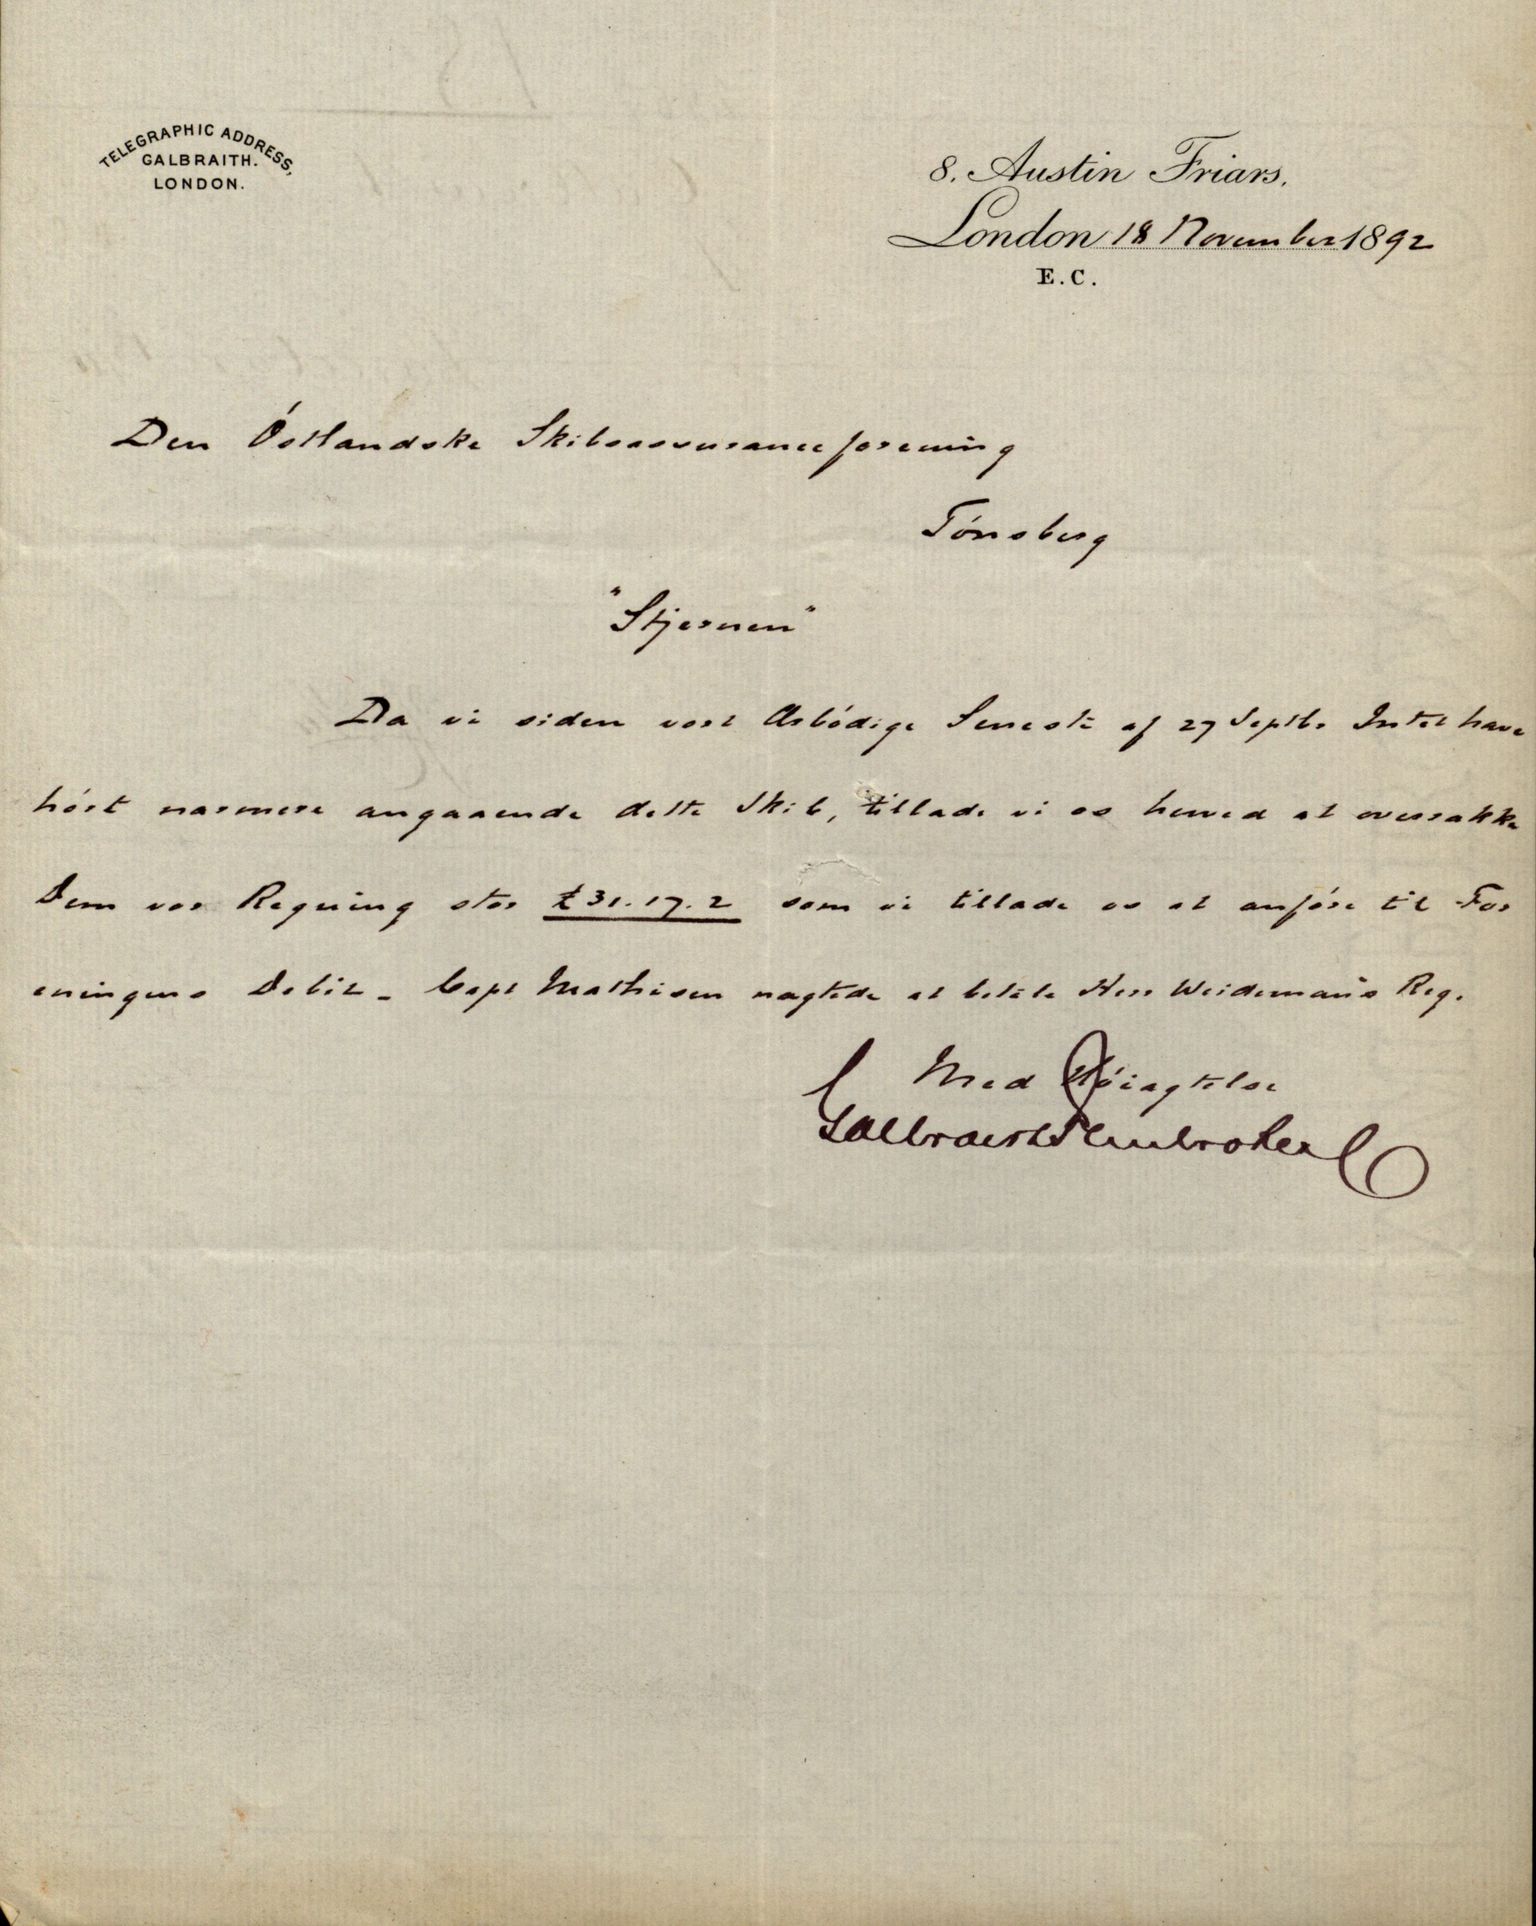 TELEGRAPHIC ADDRESS,
GALBRAITH.
LONDON.
8. Austin Friars,
London 18 November 1892
E.C.
Den Östlandske Skibsassuranceforening
Tönsberg
"Stjernen"
Da vi siden vort Ærbödige Seneste af 27 Septbr Intet have
hört nærmere angaaende dette Skib, tillade vi os herved at overrække
Dem vor Regning stor £31.17.2 som vi tillade os at anföre til For
eningens Debit - Capt Mathisen nægtede at betale Herr Weidemann's Reg.
Med Höiagtelse
Galbraith Pembroke & Co